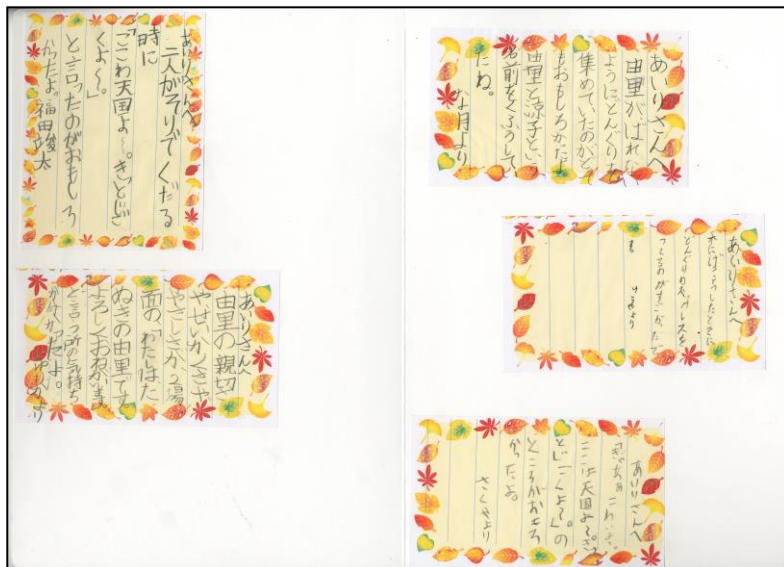 あいりさんへ
二人がそりでくだる
時に
「ここわ天国よ〜。きっとじご
くよ〜。」
と言ったのがおもしろ
かったよ。福田竣太
あいりさんへ
由里の親切さ
やせいかくさや
やさしさが、2場
面の、「わたしはた
ぬきの由里です
よろしくおねがいします
と言う所の気持ち
より
あいりさんへ
由里が、ばれない
ようにどんぐりを
集めていたのがとて
もおもしろかったよ
由里と涼子という
名前をくふうしてい
たね。
な月より
あいりさんへ
したときに
どんぐりのネックレスを
より
あいりさんへ
「ぎゃあぁ こわいよ。
ここは天国よ〜。きっ
とじごくよ〜。」の
ところがおもしろ
かったよ。
さくやより